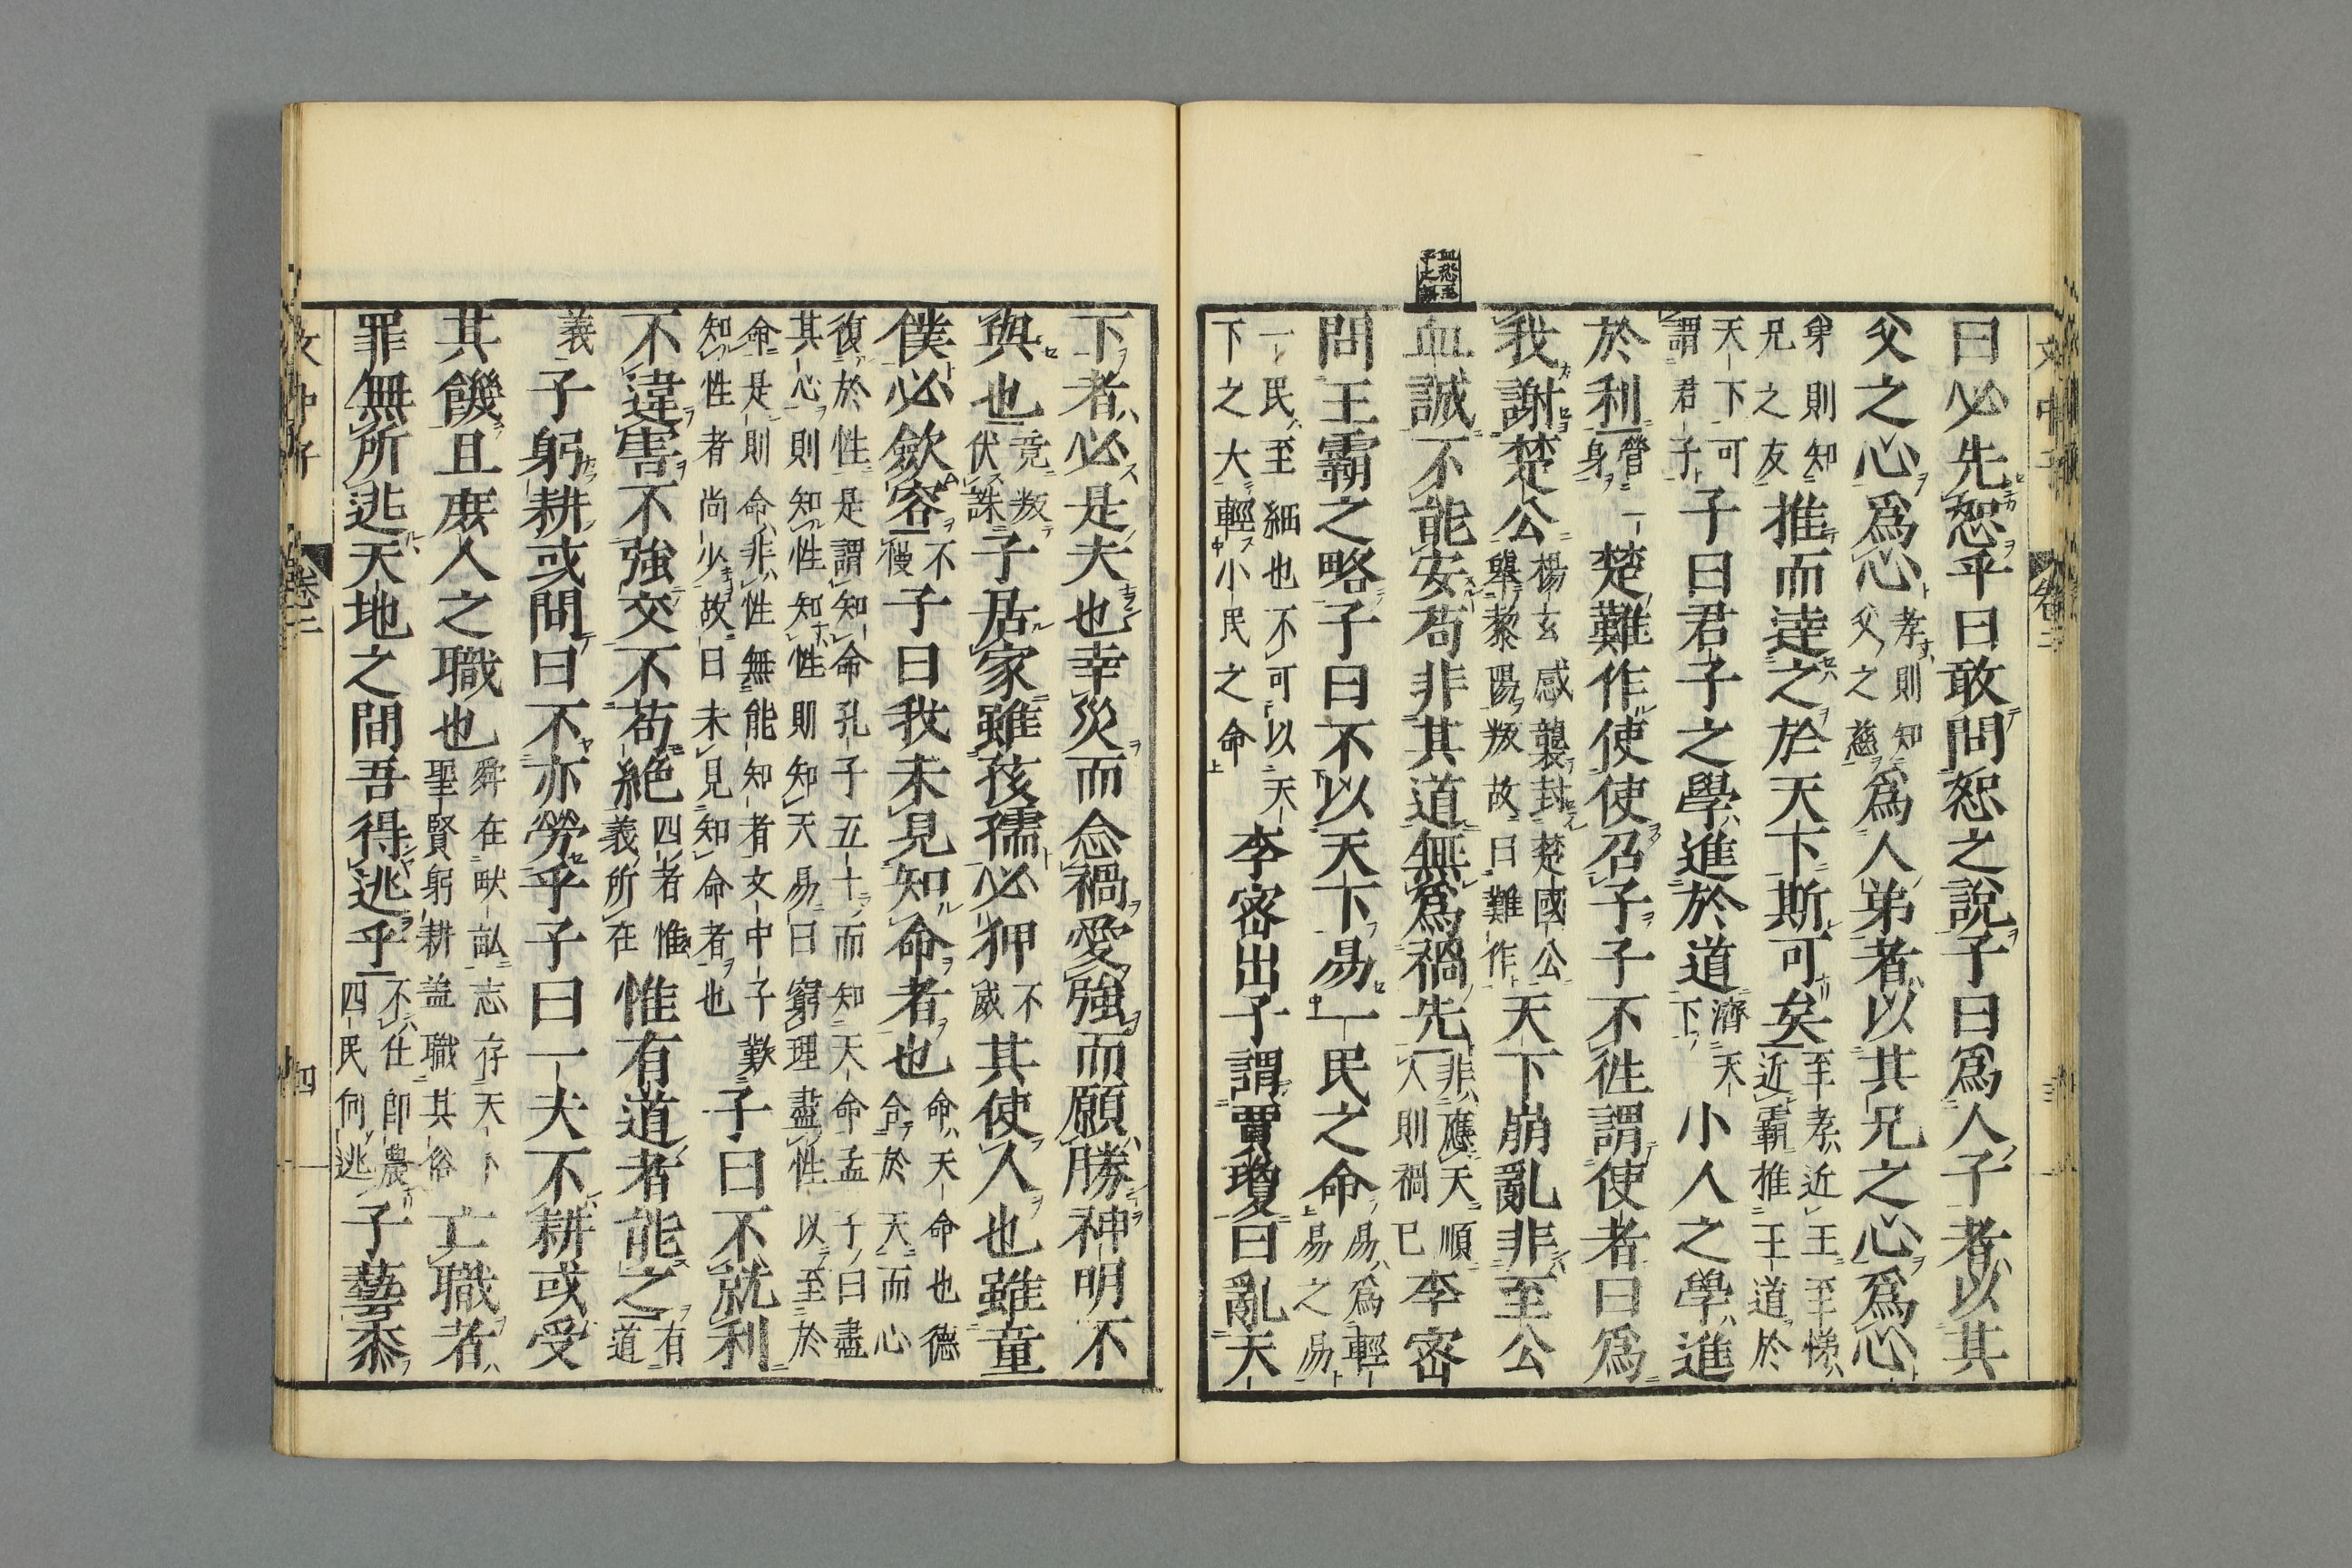 曰必先恕乎曰敢問恕之說子曰爲人子者以其
父之心爲心孝則知父之慈爲人弟者以其兄之心爲心
弟則知兄之友推而達之於天下斯可矣至孝近王至悌近霸推王道於
天下可謂君子子曰君子之學進於道濟天下小人之學進
於利營身楚難作使使召子子不徃謂使者曰爲
我謝楚公楊玄感襲封楚國公舉黎陽叛故曰難作天下崩亂非至公
血誠不能安苟非其道無爲禍先非應天順人則禍已李密
問王霸之略子曰不以天下易一民之命易爲輕易之易
一民至細也不可以天下之大輕小民之命李密出子謂賈瓊曰亂天
下者必是夫也幸災而念禍愛強而願勝神明不
與也竟叛伏誅子居家雖孩孺必狎不威其使人也雖童
僕必斂容不慢子曰我未見知命者也命天命也德合於天而心
復於性是謂知命孔子五十而知天命孟子曰盡其心則知性知性則知天易曰窮理盡性以至於
命是則命非性無能知者文中子歎知性者尚少故曰未見知命者也子曰不就利
不違害不強交不苟絕四者惟義所在惟有道者能之有道
義子躬耕或問曰不亦勞乎子曰一夫不耕或受
其饑且庶人之職也舜在畎畝志存天下聖賢躬耕蓋職其俗亡職者
罪無所逃天地之間吾得逃乎不仕即農四民何逃子藝黍
文中子
卷二
四